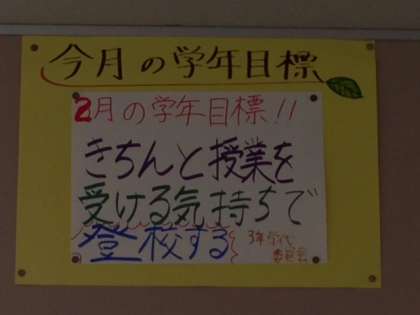 今月の学年目標
2月の学年目標!!
きちんと授業を
受ける気持ちで
登校する
3年学代
委員会